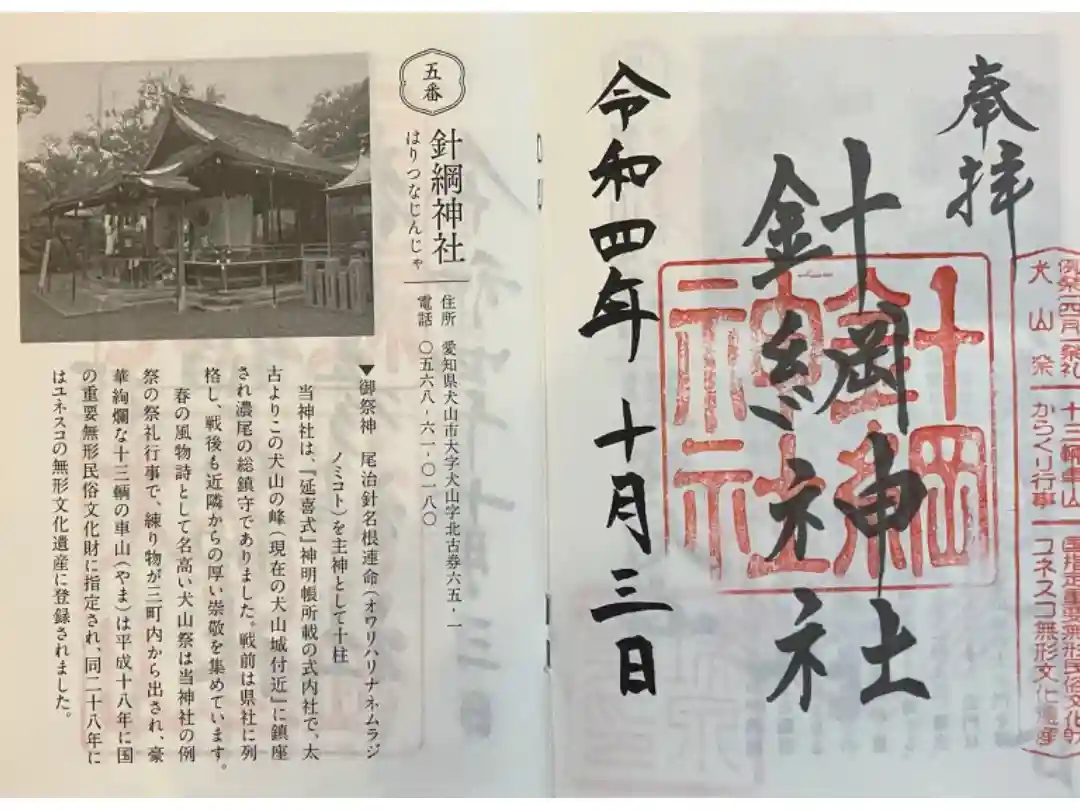 十三輌車山
国指定重要無形民俗文化財
犬山祭
からくり行事
ユネスコ無形文化遺産
奉拝
針綱神社
針綱神社
令和四年十月三日
五番
針綱神社
はりつなじんじゃ
住所 愛知県犬山市大字犬山字北古券六五・一
電話 〇五六八・六一・〇一八〇
▼御祭神 尾治針名根連命(オワリハリナネムラジ
ノミコト)を主神として十柱
当神社は、『延喜式』神明帳所載の式内社で、太
古よりこの犬山の峰(現在の犬山城付近)に鎮座
され濃尾の総鎮守でありました。戦前は県社に列
格し、戦後も近隣からの厚い崇敬を集めています。
春の風物詩として名高い犬山祭は当神社の例
祭の祭礼行事で、練り物が三町内から出され、豪
華絢爛な十三輌の車山(やま)は平成十八年に国
の重要無形民俗文化財に指定され、同二十八年に
はユネスコの無形文化遺産に登録されました。